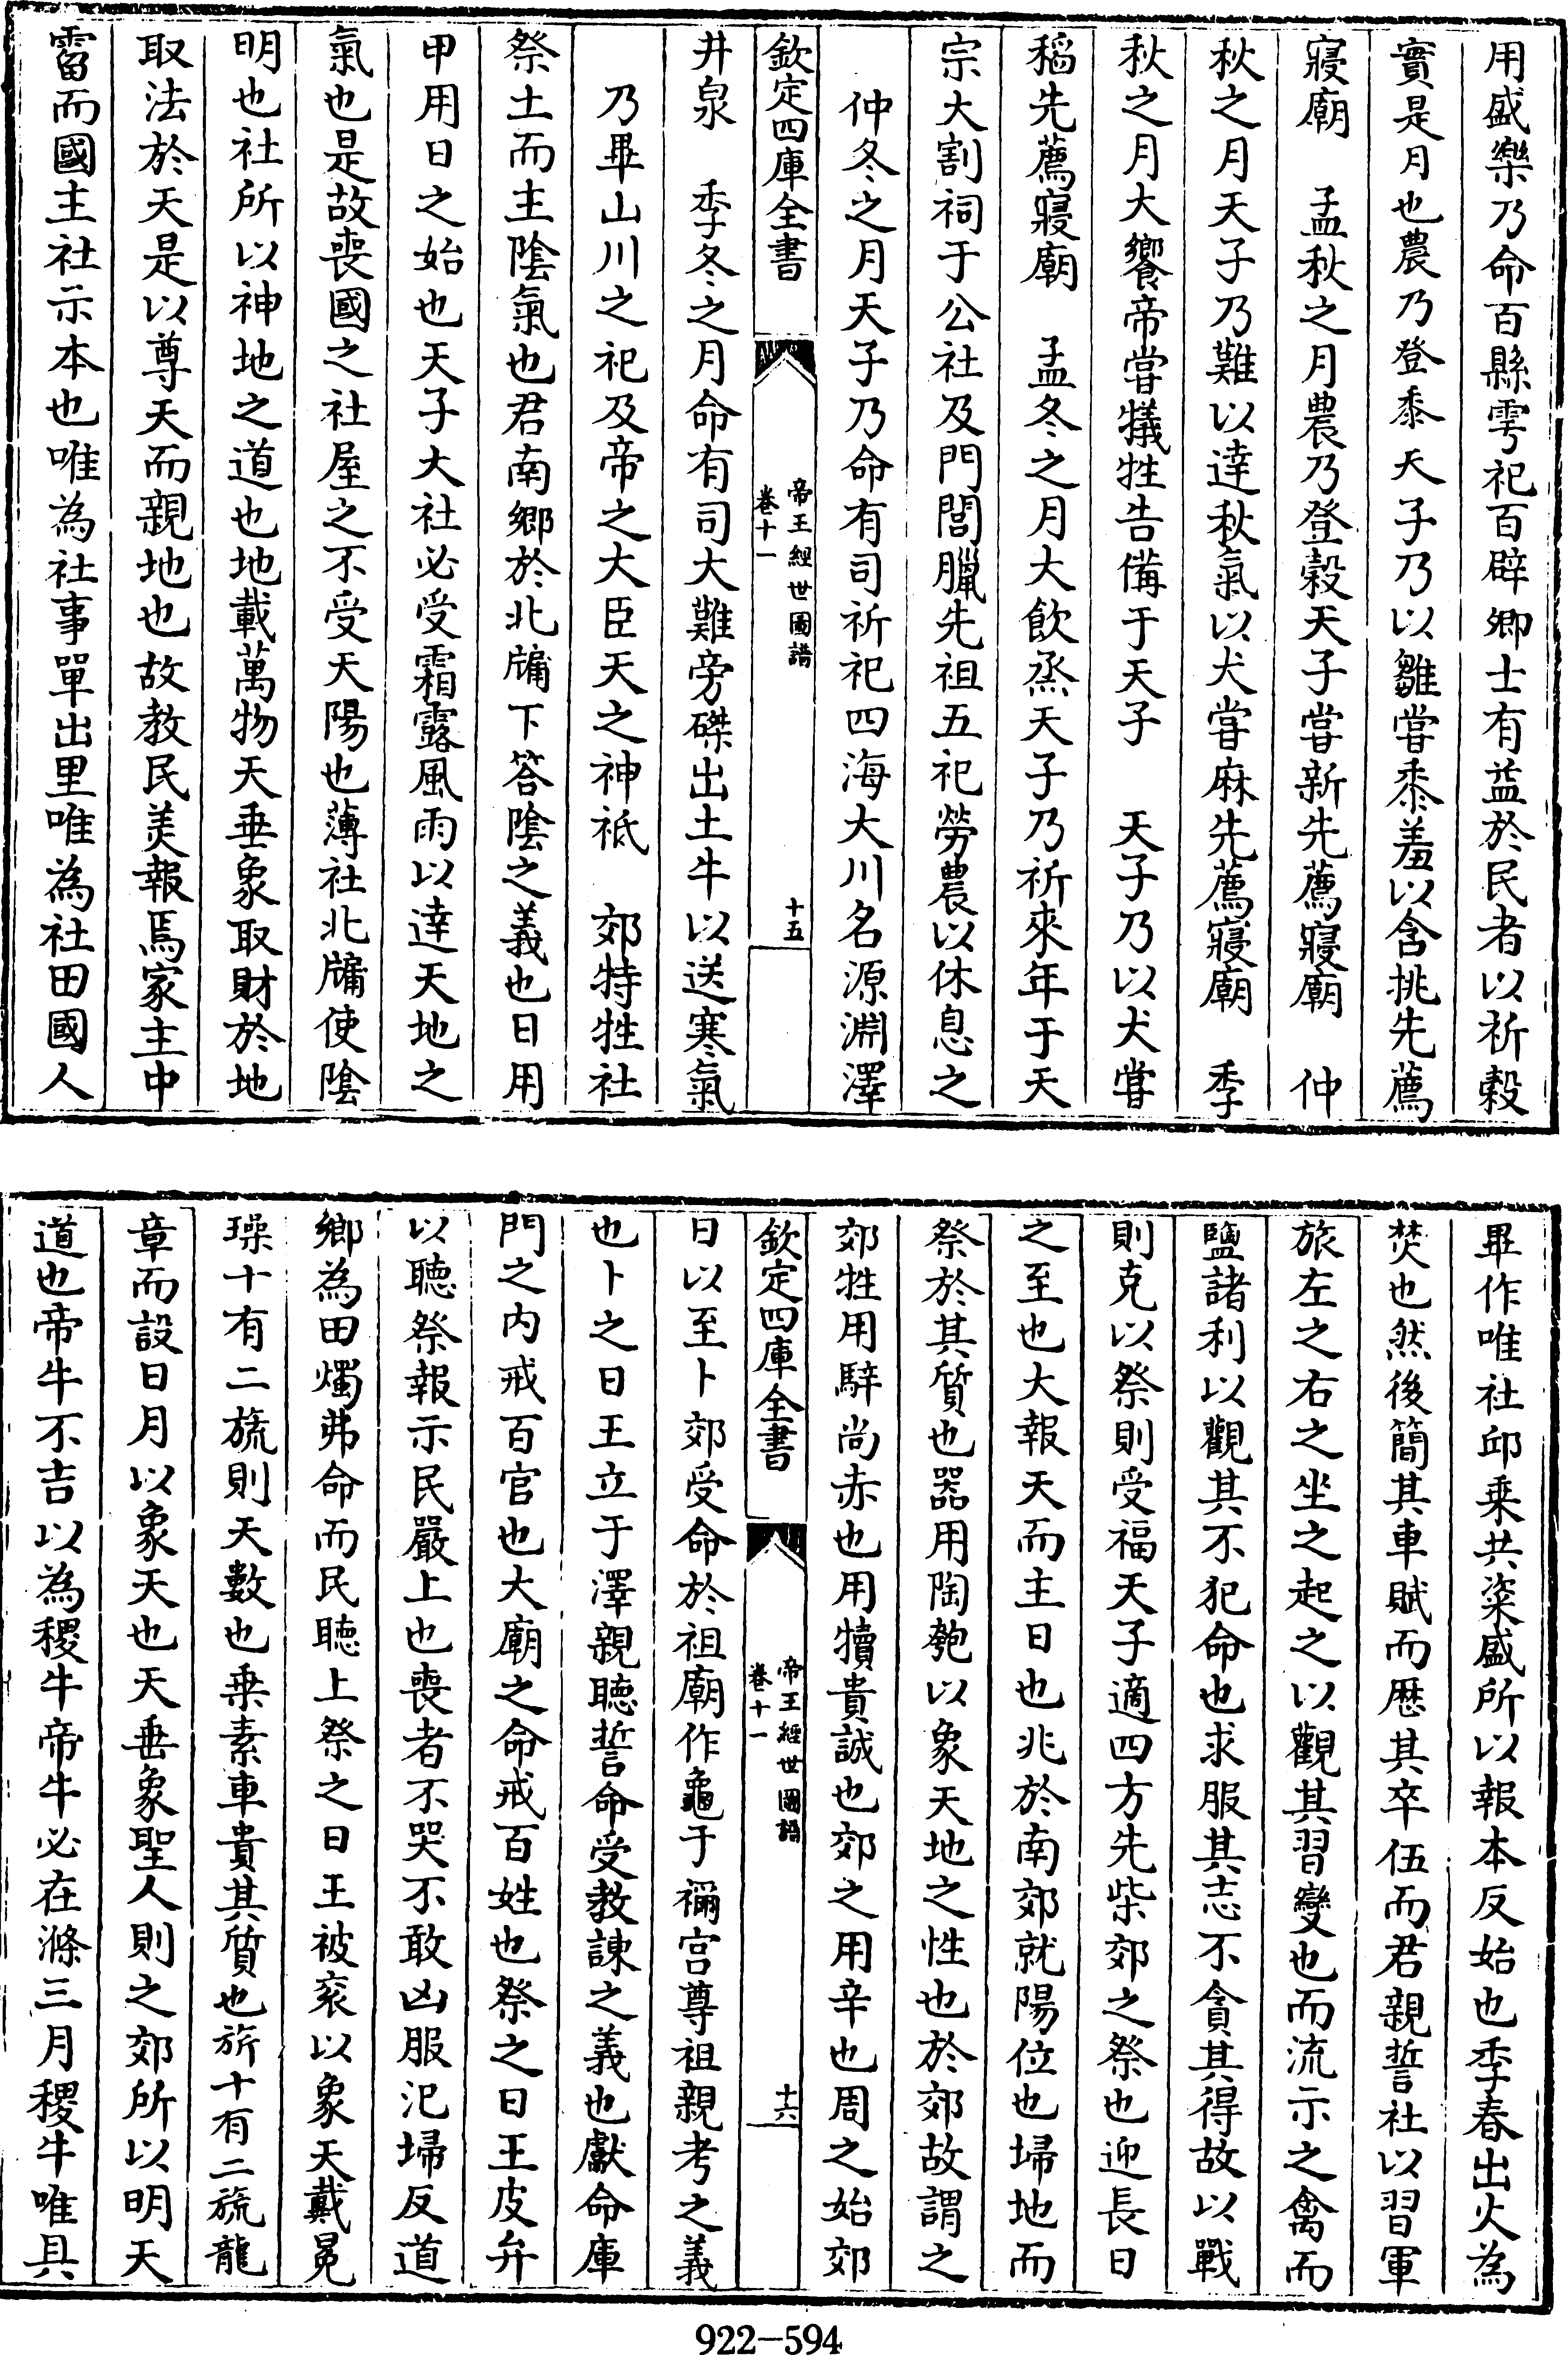 用盛樂乃命百縣雩祀百辟卿士有益於民者以祈穀
實是月也農乃登黍天子乃以雛甞黍羞以含桃先薦
寢廟　孟秋之月農乃登穀天子甞新先薦寢廟　仲
秋之月天子乃難以達秋氣以犬甞麻先薦寢廟　季
秋之月大饗帝甞犧牲告備于天子　天子乃以犬甞
稻先薦寢廟　孟冬之月大飲烝天子乃祈來年于天
宗大割祠于公社及門閭臘先祖五祀勞農以休息之
仲冬之月天子乃命有司祈祀四海大川名源淵澤
欽定四庫全書
帝王經世圖譜
卷十一
十五
井泉　季冬之月命有司大難旁磔出土牛以送寒氣
乃畢山川之祀及帝之大臣天之神祗　郊特牲社
祭土而主陰氣也君南鄉於北牗下答陰之義也日用
甲用日之始也天子大社必受霜露風雨以達天地之
氣也是故喪國之社屋之不受天陽也薄社北牗使陰
明也社所以神地之道也地載萬物天垂象取財於地
取法於天是以尊天而親地也故教民美報焉家主中
霤而國主社示本也唯為社事單出里唯為社田國人
畢作唯社邱乗共粢盛所以報本反始也季春出火為
焚也然後簡其車賦而歷其卒伍而君親誓社以習軍
旅左之右之坐之起之以觀其習變也而流示之禽而
鹽諸利以觀其不犯命也求服其志不貪其得故以戰
則克以祭則受福天子適四方先柴郊之祭也迎長日
之至也大報天而主日也兆於南郊就陽位也埽地而
祭於其質也器用陶匏以象天地之性也於郊故謂之
郊牲用騂尚赤也用犢貴誠也郊之用辛也周之始郊
欽定四庫全書
帝王經世圖譜
卷十一
十六
日以至卜郊受命於祖廟作龜于禰宫尊祖親考之義
也卜之日王立于澤親聽誓命受教諫之義也獻命庫
門之内戒百官也大廟之命戒百姓也祭之日王皮弁
以聽祭報示民嚴上也喪者不哭不敢凶服汜埽反道
鄉為田燭弗命而民聽上祭之日王被衮以象天戴冕
璪十有二旒則天數也乗素車貴其質也旂十有二旒龍
章而設日月以象天也天垂象聖人則之郊所以明天
道也帝牛不吉以為稷牛帝牛必在滌三月稷牛唯具
922-594